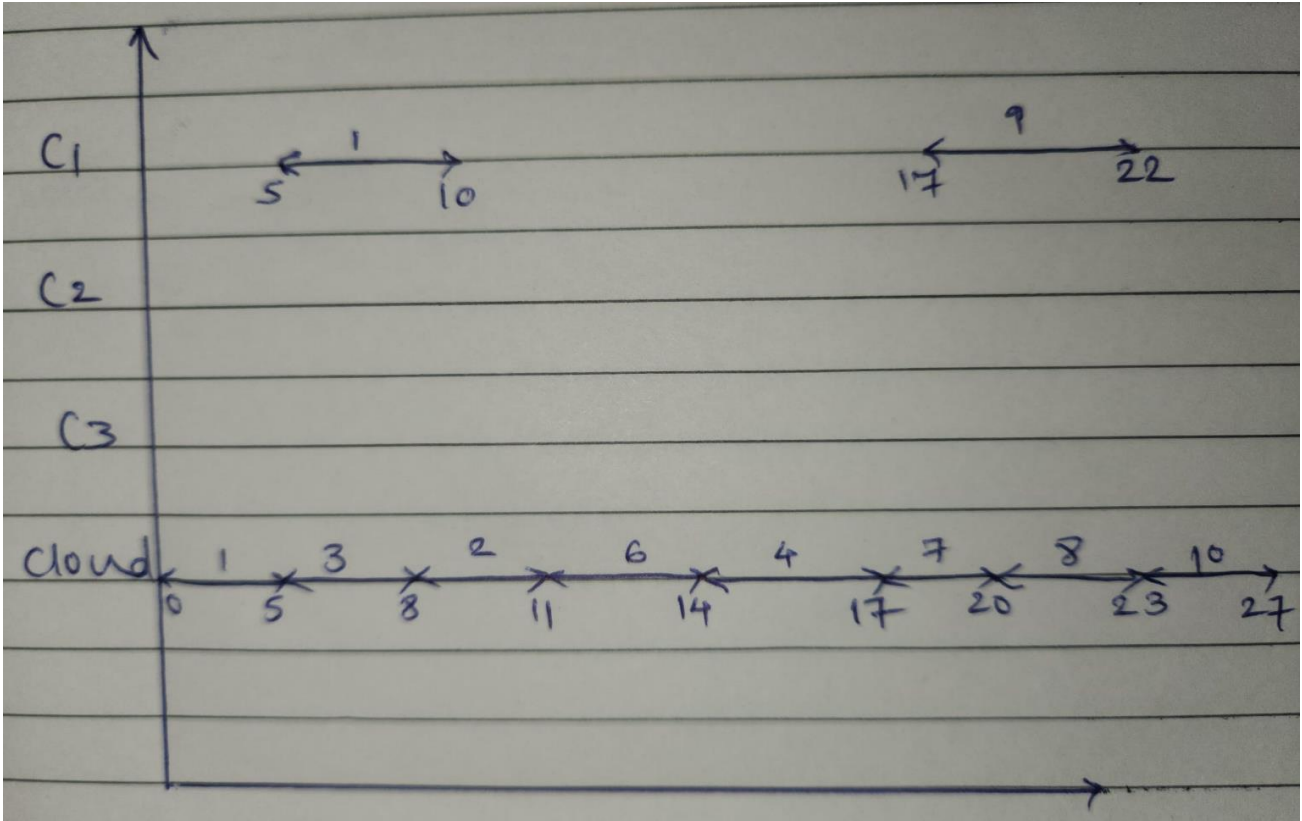 1 9
C1
5 10 17 22
C2
C3
Cloud 1 3 2 6 4 7 8 10
0 5 8 11 14 17 20 23 27